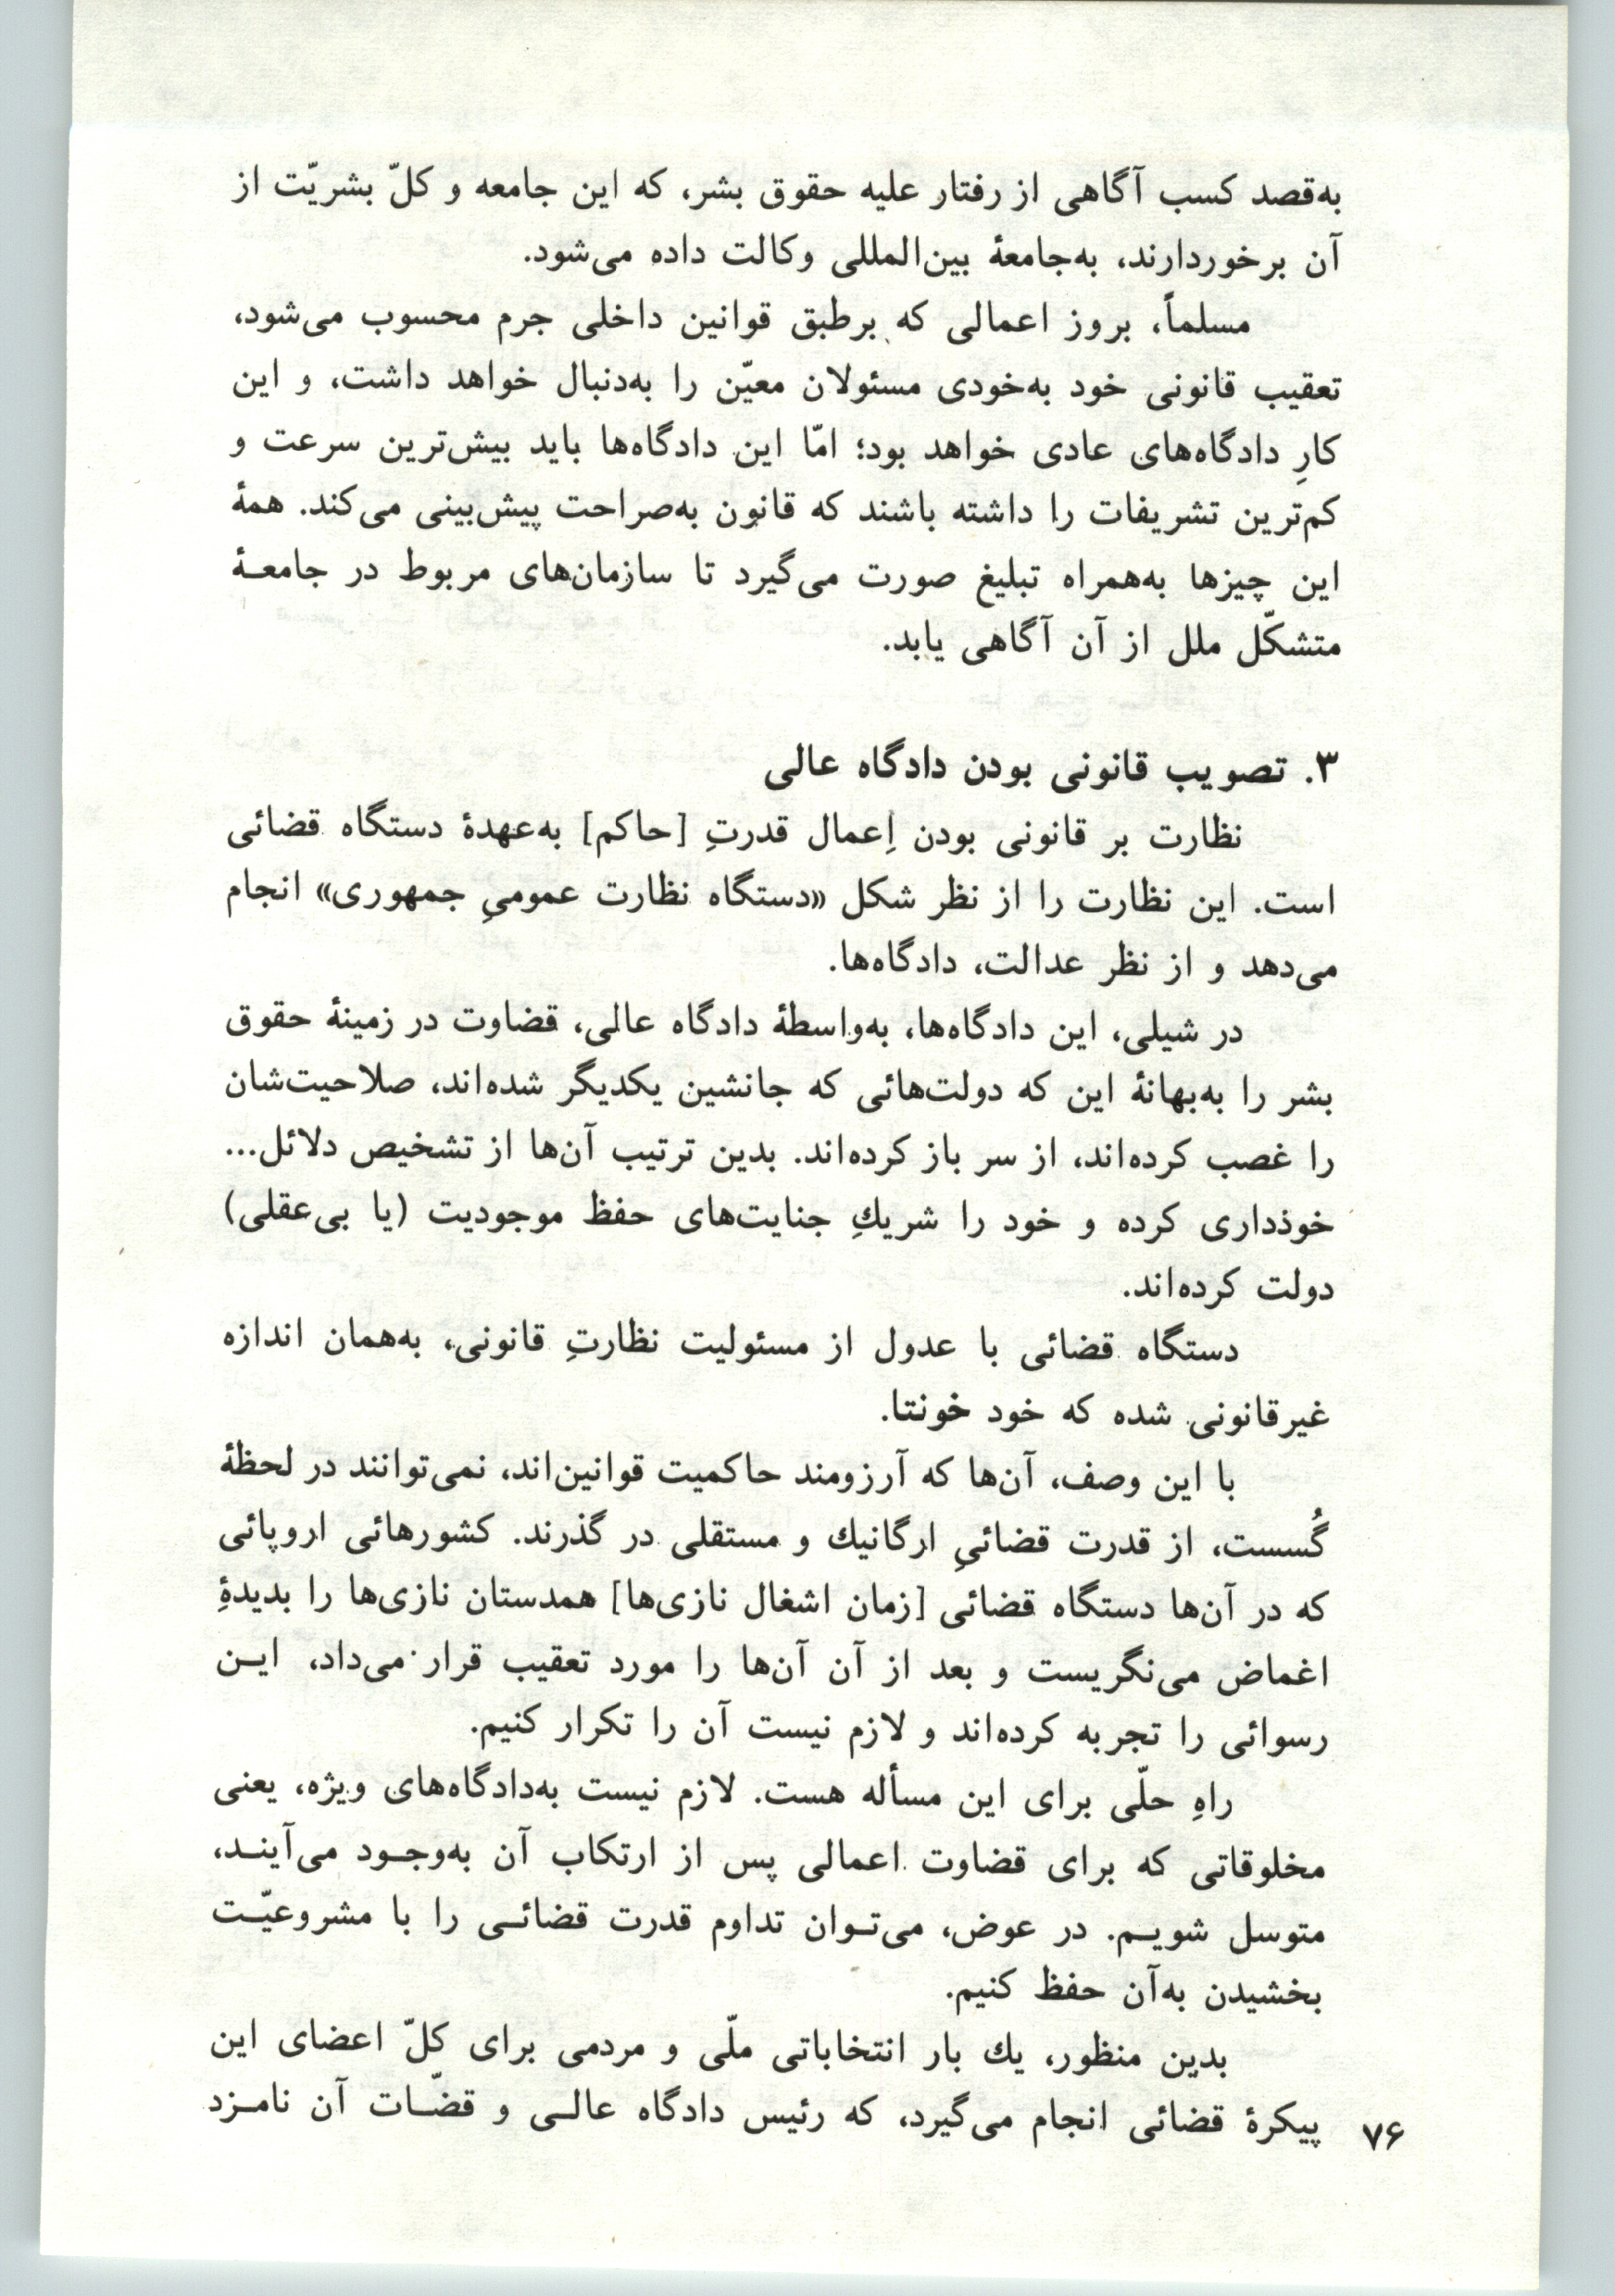 به‌قصد کسب آگاهی از رفتار علیه حقوق بشر، که این جامعه و کلّ بشریّت از
آن برخوردارند، به‌جامعهٔ بین‌المللی وکالت داده می‌شود.
مسلماً، بروز اعمالی که برطبق قوانین داخلی جرم محسوب می‌شود،
تعقیب قانونی خود به‌خودی مسئولان معیّن را به‌دنبال خواهد داشت، و این
کارِ دادگاه‌های عادی خواهد بود؛ امّا این دادگاه‌ها باید بیش‌ترین سرعت و
کم‌ترین تشریفات را داشته باشند که قانون به‌صراحت پیش‌بینی می‌کند. همهٔ
این چیزها به‌همراه تبلیغ صورت می‌گیرد تا سازمان‌های مربوط در جامعـهٔ
متشکّل ملل از آن آگاهی یابد.
۳. تصویب قانونی بودن دادگاه عالی
نظارت بر قانونی بودن اِعمال قدرتِ [حاکم] به‌عهدهٔ دستگاه قضائی
است. این نظارت را از نظر شکل «دستگاه نظارت عمومیِ جمهوری» انجام
می‌دهد و از نظر عدالت، دادگاه‌ها.
در شیلی، این دادگاه‌ها، به‌واسطهٔ دادگاه عالی، قضاوت در زمینهٔ حقوق
بشر را به‌بهانهٔ این که دولت‌هائی که جانشین یکدیگر شده‌اند، صلاحیت‌شان
را غصب کرده‌اند، از سر باز کرده‌اند. بدین ترتیب آن‌ها از تشخیص دلائل...
خوذداری کرده و خود را شریكِ جنایت‌های حفظ موجودیت (یا بی‌عقلی)
دولت کرده‌اند.
دستگاه قضائی با عدول از مسئولیت نظارتِ قانونی، به‌همان اندازه
غیرقانونی شده که خود خونتا.
با این وصف، آن‌ها که آرزومند حاکمیت قوانین‌اند، نمی‌توانند در لحظهٔ
گُسست، از قدرت قضائیِ ارگانیك و مستقلی در گذرند. کشورهائی اروپائی
که در آن‌ها دستگاه قضائی [زمان اشغال نازی‌ها] همدستان نازی‌ها را بدیدهٔ
اغماض می‌نگریست و بعد از آن آن‌ها را مورد تعقیب قرار می‌داد، ایـن
رسوائی را تجربه کرده‌اند و لازم نیست آن را تکرار کنیم.
راهِ حلّی برای این مسأله هست. لازم نیست به‌دادگاه‌های ویژه، یعنی
مخلوقاتی که برای قضاوت اعمالی پس از ارتکاب آن به‌وجـود می‌آینـد،
متوسل شویـم. در عوض، می‌تـوان تداوم قدرت قضائـی را با مشروعیّـت
بخشیدن به‌آن حفظ کنیم.
بدین منظور، یك بار انتخاباتی ملّی و مردمی برای کلّ اعضای این
پیکرهٔ قضائی انجام می‌گیرد، که رئیس دادگاه عالـی و قضّـات آن نامـزد
۷۶